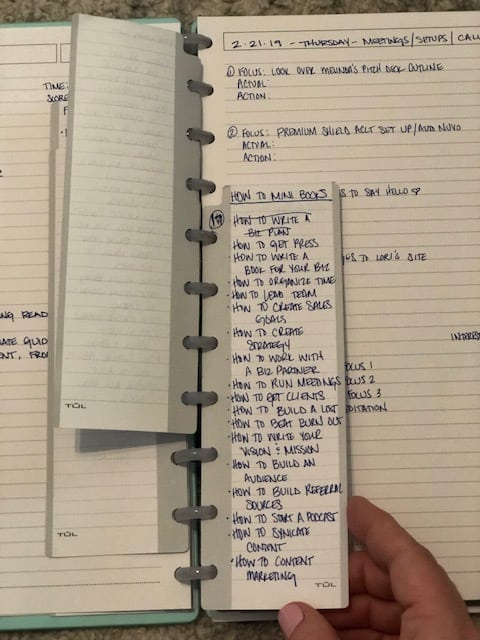 TIME:
SCORE
TUL
TUL
NG READ
ATE GUID
ENT, FRO
2.21.19 - THURSDAY - MEETINGS/SETUPS/CALL
① FOCUS: LOOK OVER MELINDA'S PITCH DECK OUTLINE
ACTUAL:
ACTION:
② FOCUS: PREMIUM SHIELD ACCT SET UP/AUTO NUVO
ACTUAL:
ACTION:
S TO SAY HELLO
ES TO LORI'S SITE
INTERES
OCUS 1
OCUS 2
FOCUS 3
DITATION
HOW TO MINI BOOKS
17
HOW TO WRITE A
BIZ PLAN
HOW TO GET PRESS
• HOW TO WRITE A
BOOK FOR YOUR BIZ
• HOW TO ORGANIZE TIME
• HOW TO LEAD TEAM
• HOW TO CREATE SALES
GOALS
• HOW TO CREATE
STRATEGY
• HOW TO WORK WITH
A BIZ PARTNER
• HOW TO RUN MEETINGS
• HOW TO GET CLIENTS
• HOW TO BUILD A LIST
• HOW TO BEAT BURN OUT
• HOW TO WRITE YOUR
VISION & MISSION
• HOW TO BUILD AN
AUDIENCE
• HOW TO BUILD REFERRAL
SOURCES
• HOW TO START A PODCAST
• HOW TO SYNICATE
CONTENT
• HOW TO CONTENT
MARKETING
TUL